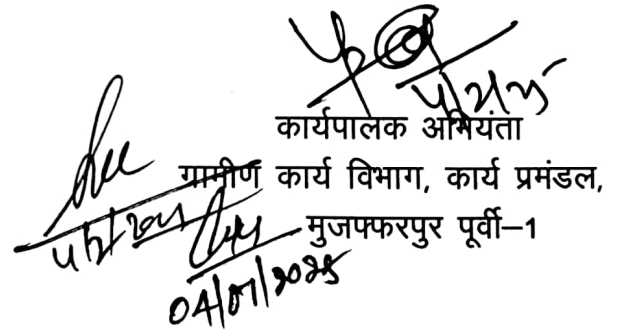 कार्यपालक अभियंता
गामीण कार्य विभाग, कार्य प्रमंडल,
मुजफ्फरपुर पूर्वी–1
04/07/2025